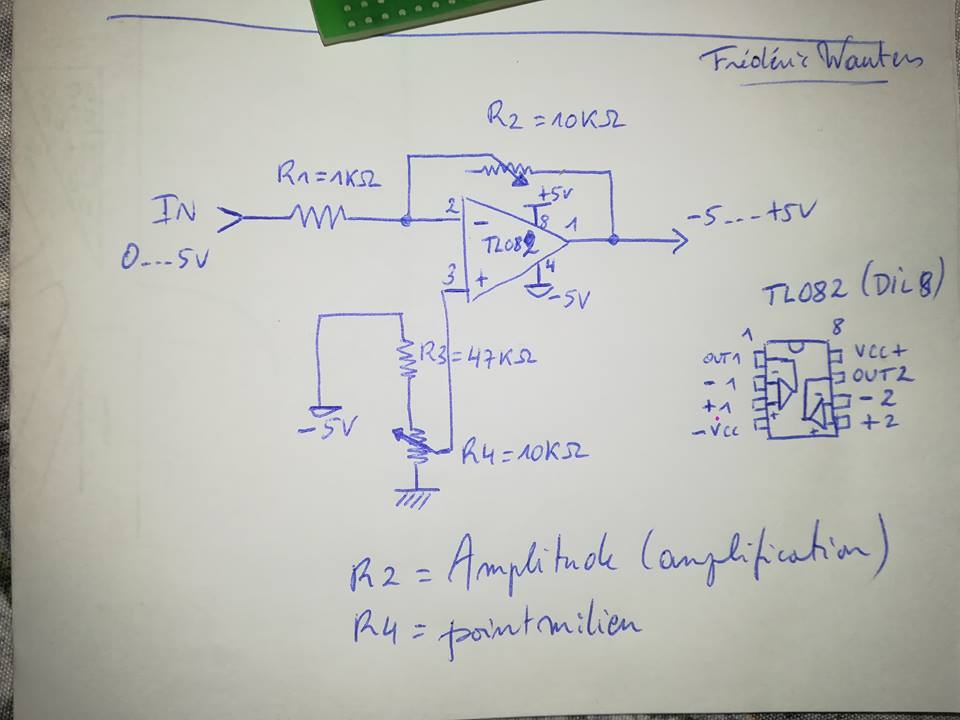 Frédéric Wauters
R2 = 10KΩ
R1 = 1KΩ
IN
0...5V
2
-
+5V
8
1
TL082
-5...+5V
3
+
4
-5V
R3 = 47KΩ
-5V
R4 = 10KΩ
TL082 (DIL8)
1
8
OUT1
VCC+
-1
OUT2
+1
-2
-VCC
+2
-
+
-
+
R2 = Amplitude (amplification)
R4 = point milieu